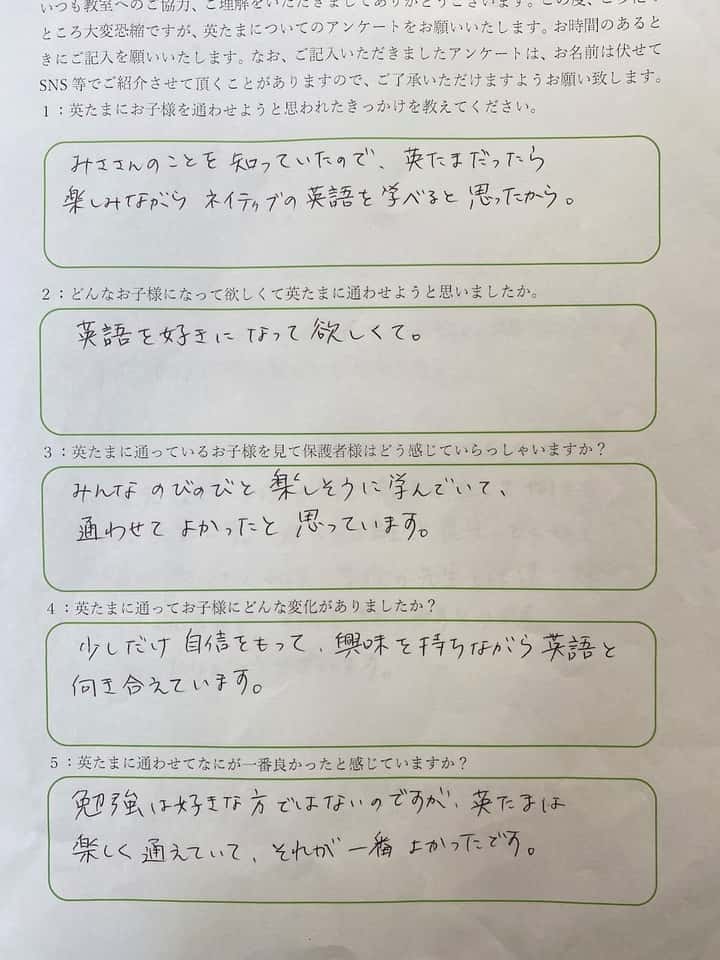 いつも教室へのご協力、ご理解をいただきましてありがとうございます。この度、
ところ大変恐縮ですが、英たまについてのアンケートをお願いいたします。お時間のあると
きにご記入を願いいたします。なお、ご記入いただきましたアンケートは、お名前は伏せて
SNS等でご紹介させて頂くことがありますので、ご了承いただけますようお願い致します。
1：英たまにお子様を通わせようと思われたきっかけを教えてください。
みささんのことを知っていたので、英たまだったら
楽しみながらネイティブの英語を学べると思ったから。
2：どんなお子様になって欲しくて英たまに通わせようと思いましたか。
英語を好きになって欲しくて。
3：英たまに通っているお子様を見て保護者様はどう感じていらっしゃいますか？
みんなのびのびと楽しそうに学んでいて、
通わせてよかったと思っています。
4：英たまに通ってお子様にどんな変化がありましたか？
少しだけ自信をもって、興味を持ちながら英語と
向き合えています。
5：英たまに通わせてなにが一番良かったと感じていますか？
勉強は好きな方ではないのですが、英たまは
楽しく通えていて、それが一番よかったです。